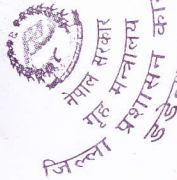 नेपाल सरकार
गृह मन्त्रालय
जिल्ला प्रशासन का